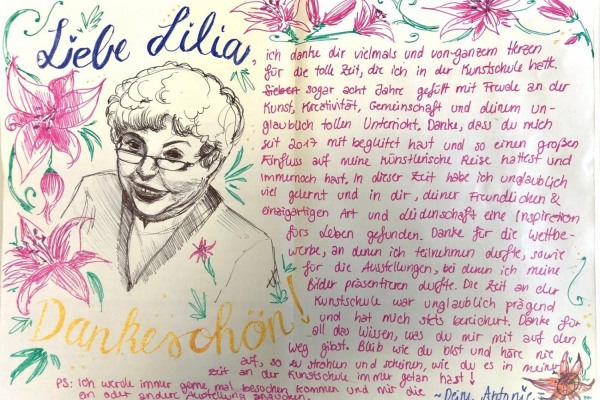 Liebe Lilia,
ich danke dir vielmals und von ganzem Herzen
für die tolle Zeit, die ich in der Kunstschule hatte.
sogar acht Jahre gefüllt mit Freude an der
Kunst, Kreativität, Gemeinschaft und deinem un-
glaublich tollen Unterricht. Danke, dass du mich
seit 2017 mit begleitet hast und so einen großen
Einfluss auf meine künstlerische Reise hattest und
immernoch hast. In dieser Zeit habe ich unglaublich
viel gelernt und in dir, deiner Freundlichen &
einzigartigen Art und Leidenschaft eine Inspiration
fürs Leben gefunden. Danke für die Wettbe-
werbe, an denen ich teilnehmen durfte, sowie
für die Ausstellungen, bei denen ich meine
Bilder präsentieren durfte. Die Zeit an der
Kunstschule war unglaublich prägend
und hat mich stets bereichert. Danke für
all das Wissen, was du mir mit auf den
Weg gibst. Bleib wie du bist und höre nie
auf, so zu strahlen und scheinen, wie du es in meiner
Zeit an der Kunstschule immer getan hast!
Dankeschön!
PS: Ich werde immer gerne mal besuchen kommen und mir die
ein oder andere Ausstellung angucken.
~ Deine Antonie